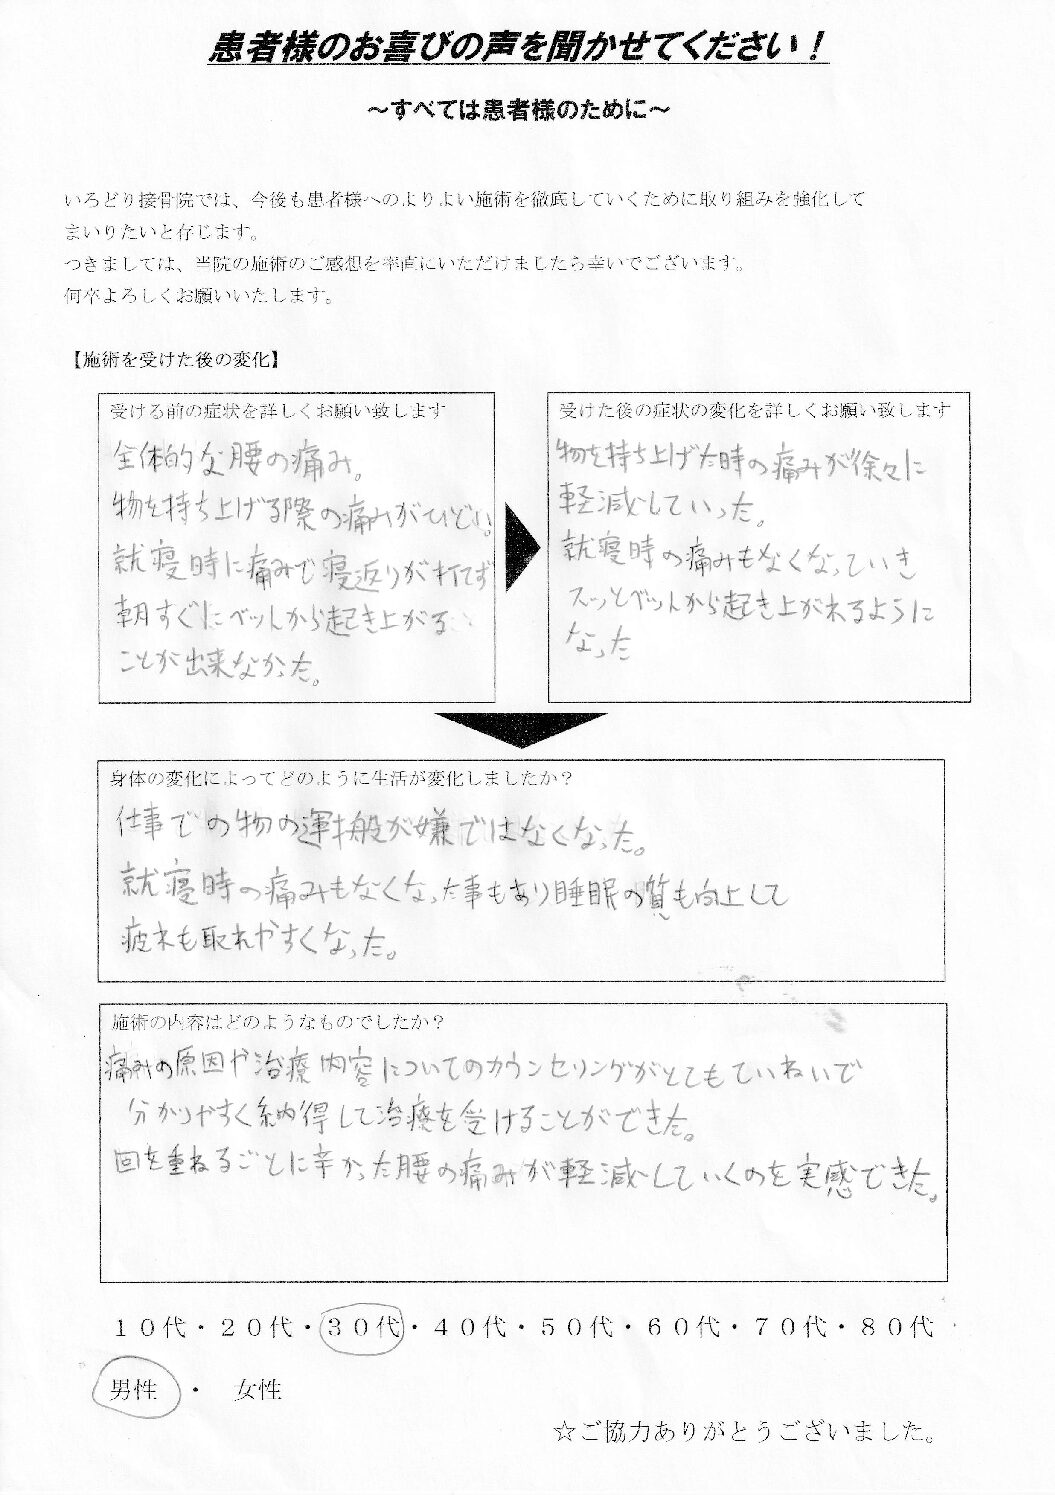 患者様のお喜びの声を聞かせてください！
～すべては患者様のために～
いろどり接骨院では、今後も患者様へのよりよい施術を徹底していくために取り組みを強化して
まいりたいと存じます。
つきましては、当院の施術のご感想を率直にいただけましたら幸いでございます。
何卒よろしくお願いいたします。
【施術を受けた後の変化】
受ける前の症状を詳しくお願い致します
全体的な腰の痛み。
物を持ち上げる際の痛みがひどい。
就寝時に痛みで寝返りが打てず
朝すぐにベットから起き上がる
ことが出来なかった。
受けた後の症状の変化を詳しくお願い致します
物を持ち上げた時の痛みが徐々に
軽減していった。
就寝時の痛みもなくなっていき
スッとベットから起き上がれるように
なった
身体の変化によってどのように生活が変化しましたか？
仕事での物の運搬が嫌ではなくなった。
就寝時の痛みもなくなった事もあり睡眠の質も向上して
疲れも取れやすくなった。
施術の内容はどのようなものでしたか？
痛みの原因や治療内容についてのカウンセリングがとてもていねいで
分かりやすく納得して治療を受けることができた。
回を重ねるごとに辛かった腰の痛みが軽減していくのを実感できた。
１０代・２０代・３０代・４０代・５０代・６０代・７０代・８０代
男性 ・ 女性
☆ご協力ありがとうございました。